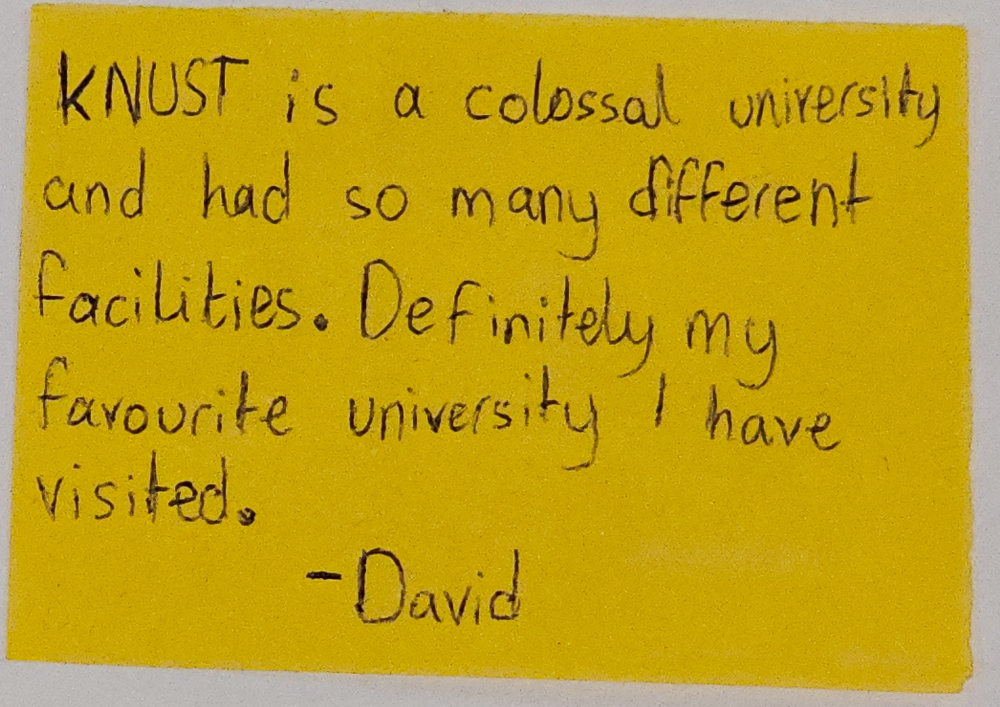 KNUST is a colossal university
and had so many different
facilities. Definitely my
favourite university I have
visited.
-David